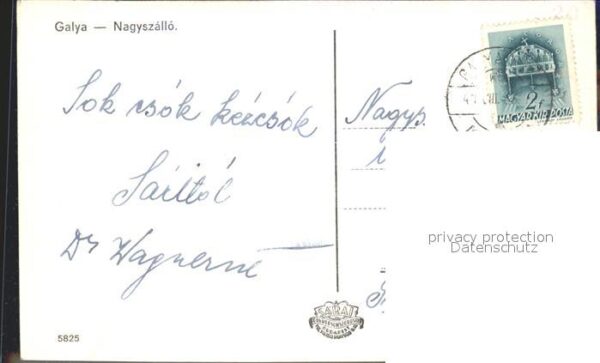 Galya — Nagyszálló.
Sok csók kézcsók
Sáritól
Dr Wagnerné
Nagys.
2 f
MAGYAR KIR. POSTA
privacy protection
Datenschutz
BARASITS
5825